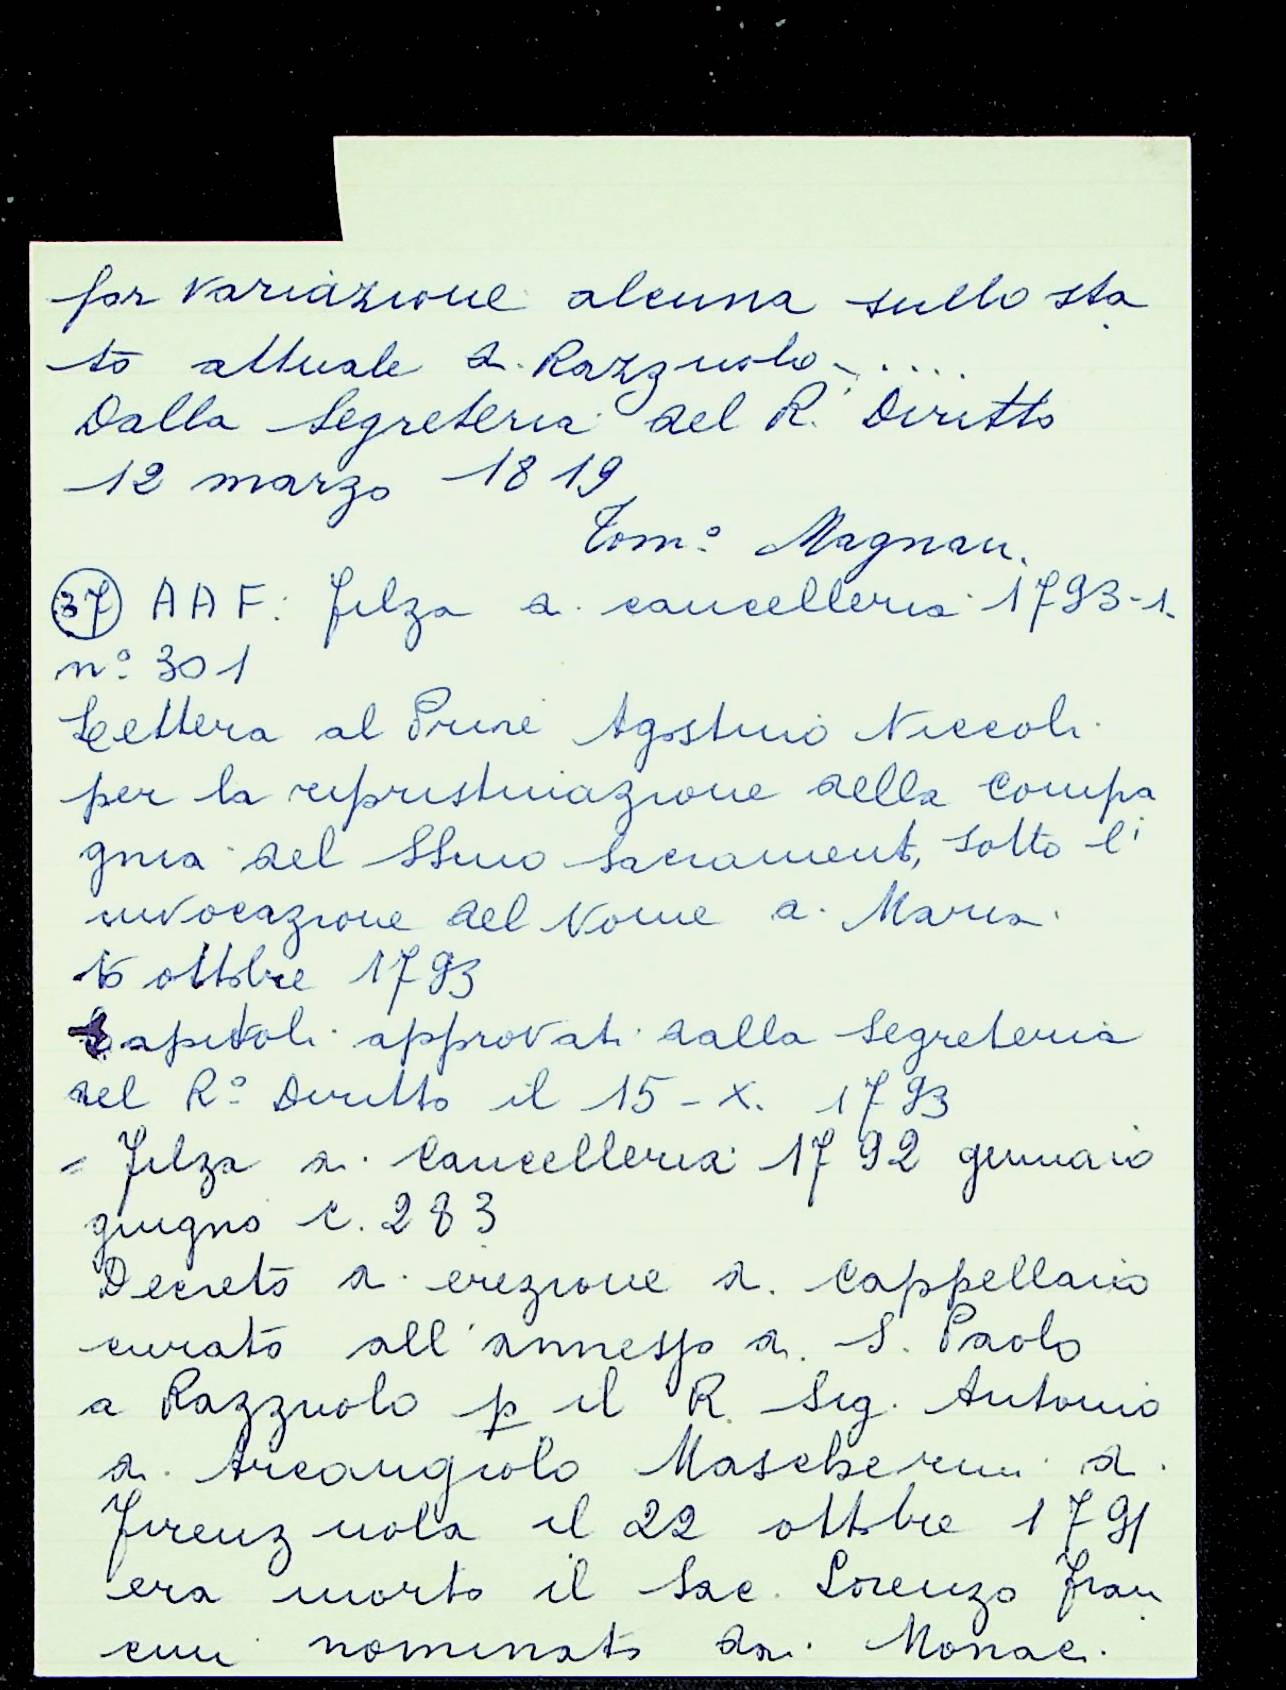 far variazione alcuna sullo sta
to attuale di Razzuolo.....
Dalla Segreteria del R. Diritto
12 marzo 1819
Tom.º Magnani.
37 AAF: Filza di cancelleria 1793-1.
n.º 301
Lettera al Priore Agostino Niccoli
per la ripristinazione della Compa
gnia del SSmo Sacramento, sotto l'
invocazione del Nome di Maria.
ottobre 1793
Capitoli approvati dalla Segreteria
del R.º Diritto il 15-X. 1793
= Filza di Cancelleria 1792 gennaio
giugno c. 283
Decreto di erezione di Cappellano
curato all'annesso di S. Paolo
a Razzuolo p il R. Sig. Antonio
di Arcangiolo Mascherini di
Firenzuola il 22 ottobre 1791
era morto il Sac. Lorenzo Fran
cini nominato dai Monaci.